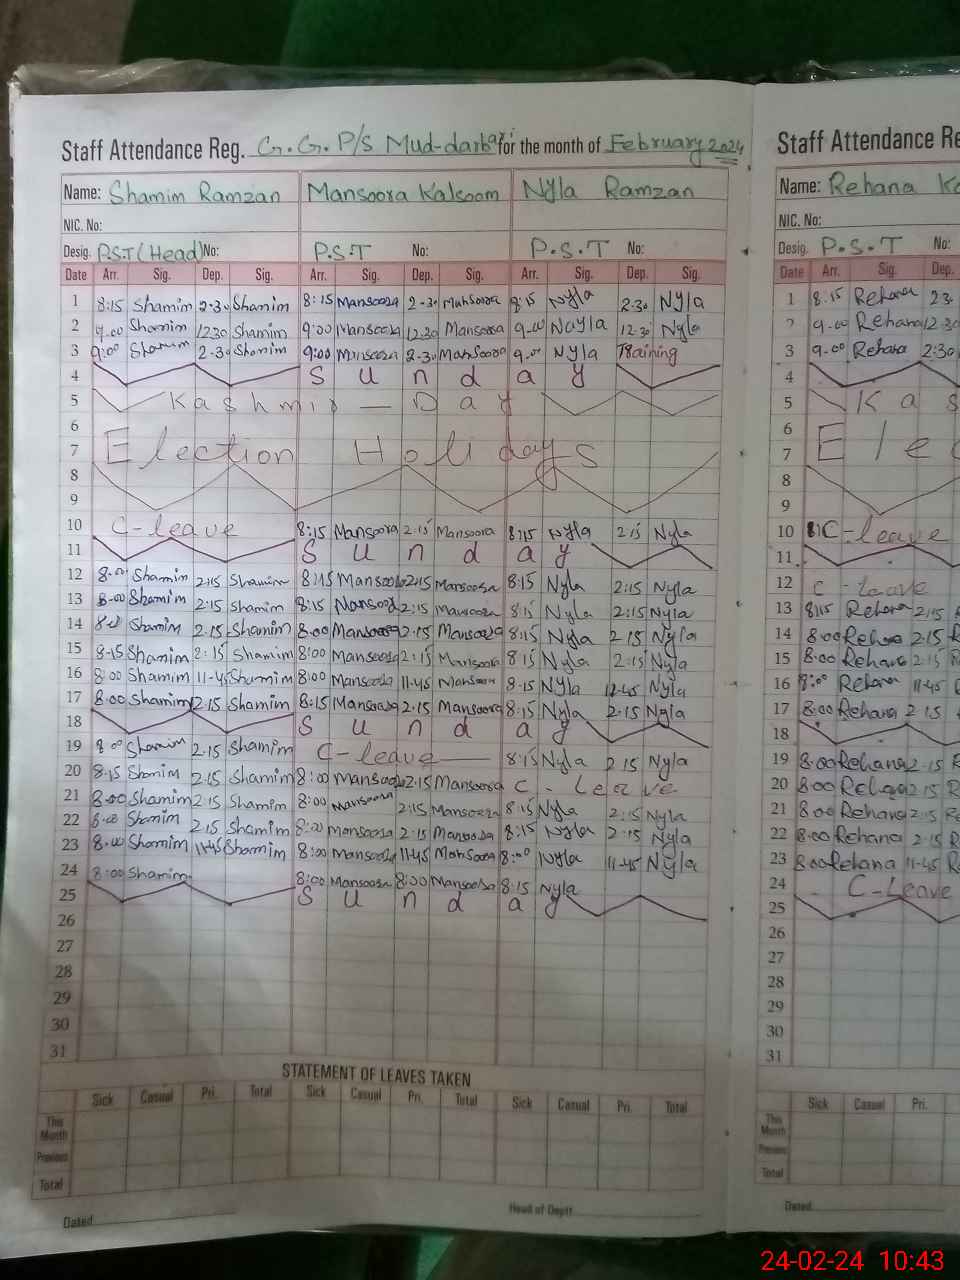 Staff Attendance Reg. G.G. P/S Mud-darbari for the month of February 2024
Name: Shamim Ramzan Mansoora Kalsoom Nyla Ramzan
NIC. No:
Desig. P.S.T (Head) No: P.S.T No: P.S.T No:
Date Arr. Sig. Dep. Sig. Arr. Sig. Dep. Sig. Arr. Sig. Dep. Sig.
1 8:15 Shamim 2-30 Shamim 8:15 Mansoora 2-30 Mansoora 8:15 Nyla 2.30 Nyla
2 9.00 Shamim 12.30 Shamim 9:00 Mansoora 12.30 Mansoora 9-00 Nayla 12-30 Nyla
3 9:00 Shamim 2-30 Shamim 9:00 Mansoora 2-30 Mansoora 9-00 Nyla Training
4 Sunday
5 Kashmir - Day
6
7 Election Holidays
8
9
10 C-leave 8:15 Mansoora 2.15 Mansoora 8:15 Nyla 2:15 Nyla
11 Sunday
12 8-00 Shamim 2:15 Shamim 8:15 Mansoora 2:15 Mansoora 8:15 Nyla 2:15 Nyla
13 8-00 Shamim 2:15 Shamim 8:15 Mansoora 2:15 Mansoora 8:15 Nyla 2:15 Nyla
14 Shamim 2.15 Shamim 8.00 Mansoora 2.15 Mansoora 8:15 Nyla 2 15 Nyla
15 8-15 Shamim 2:15 Shamim 8:00 Mansoora 2:15 Mansoora 8:15 Nyla 2:15 Nyla
16 8:00 Shamim 11-45 Shamim 8:00 Mansoora 11.45 Mansoora 8.15 Nyla 12.45 Nyla
17 8.00 Shamim 2.15 Shamim 8:15 Mansoora 2.15 Mansoora 8.15 Nyla 2.15 Nyla
18 Sunday
19 8 00 Shamim 2.15 Shamim C-leave 8:15 Nyla 2 15 Nyla
20 8.15 Shamim 2.15 Shamim 8:00 Mansoora 2.15 Mansoora C-Leave
21 8.00 Shamim 2 15 Shamim 8:00 Mansoora 2:15 Mansoora 8.15 Nyla 2:15 Nyla
22 8.00 Shamim 2.15 Shamim 8:00 Mansoora 2.15 Mansoora 8:15 Nyla 2.15 Nyla
23 8.00 Shamim 11.45 Shamim 8:00 Mansoora 11.45 Mansoora 8:00 Nyla 11-45 Nyla
24 8:00 Shamim 8:00 Mansoora 8:00 Mansoora 8.15 Nyla
25 Sunday
26
27
28
29
30
31
STATEMENT OF LEAVES TAKEN
Sick Casual Pri. Total Sick Casual Pri. Total Sick Casual Pri. Total
This Month
Previous
Total
Dated Head of Deptt
Staff Attendance Re
Name: Rehana Ka
NIC. No:
Desig. P.S.T No:
Date Arr. Sig. Dep.
1 8.15 Rehana 2.3
2 9-00 Rehana 12.3
3 9.00 Rehana 2:30
4
5 Kas
6
7 Elec
8
9
10 C-leave
11
12 C-Leave
13 8:15 Rehana 2:15 R
14 8:00 Rehana 2.15 R
15 8.00 Rehana 2.15 R
16 8:00 Rehana 11.45 R
17 8:00 Rehana 2 15
18
19 8.00 Rehana 2.15 R
20 8:00 Rehana 2.15 R
21 8:00 Rehana 2.15 Re
22 8:00 Rehana 2.15 R
23 8:00 Rehana 11-45 R
24 C-Leave
25
26
27
28
29
30
31
Sick Casual Pri.
This Month
Previous
Total
Dated
24-02-24 10:43